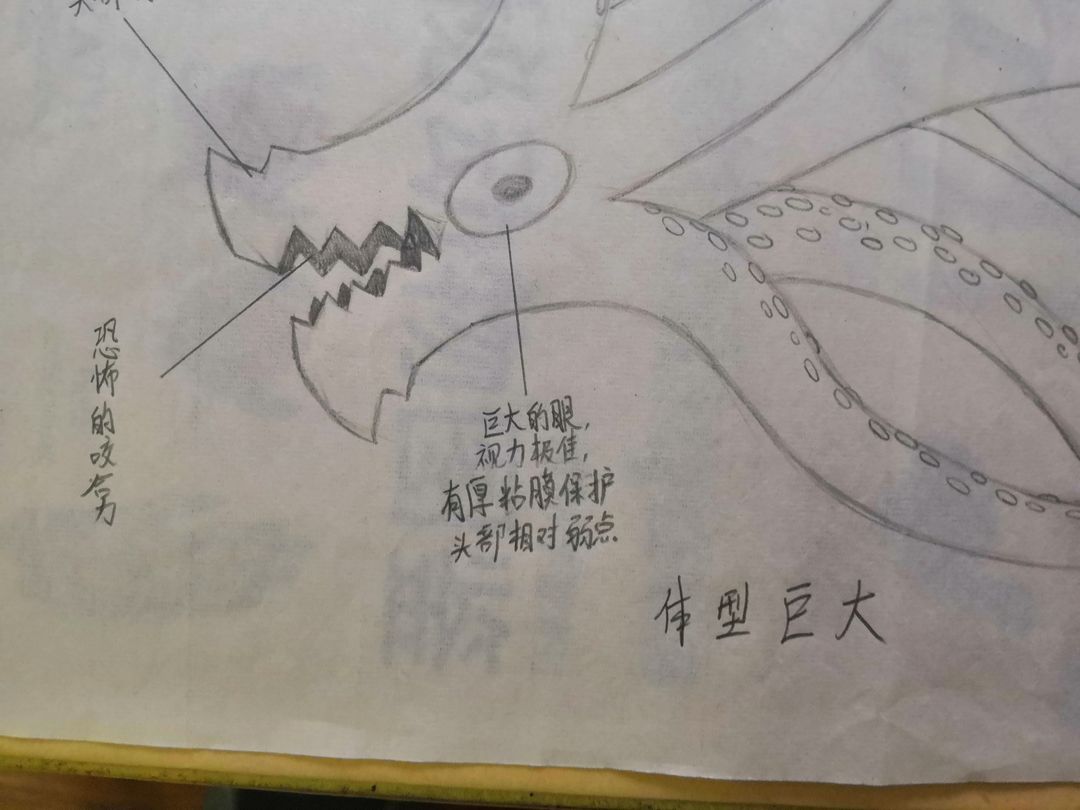 恐怖的咬合力
巨大的眼,
视力极佳,
有厚粘膜保护
头部相对弱点.
体型巨大